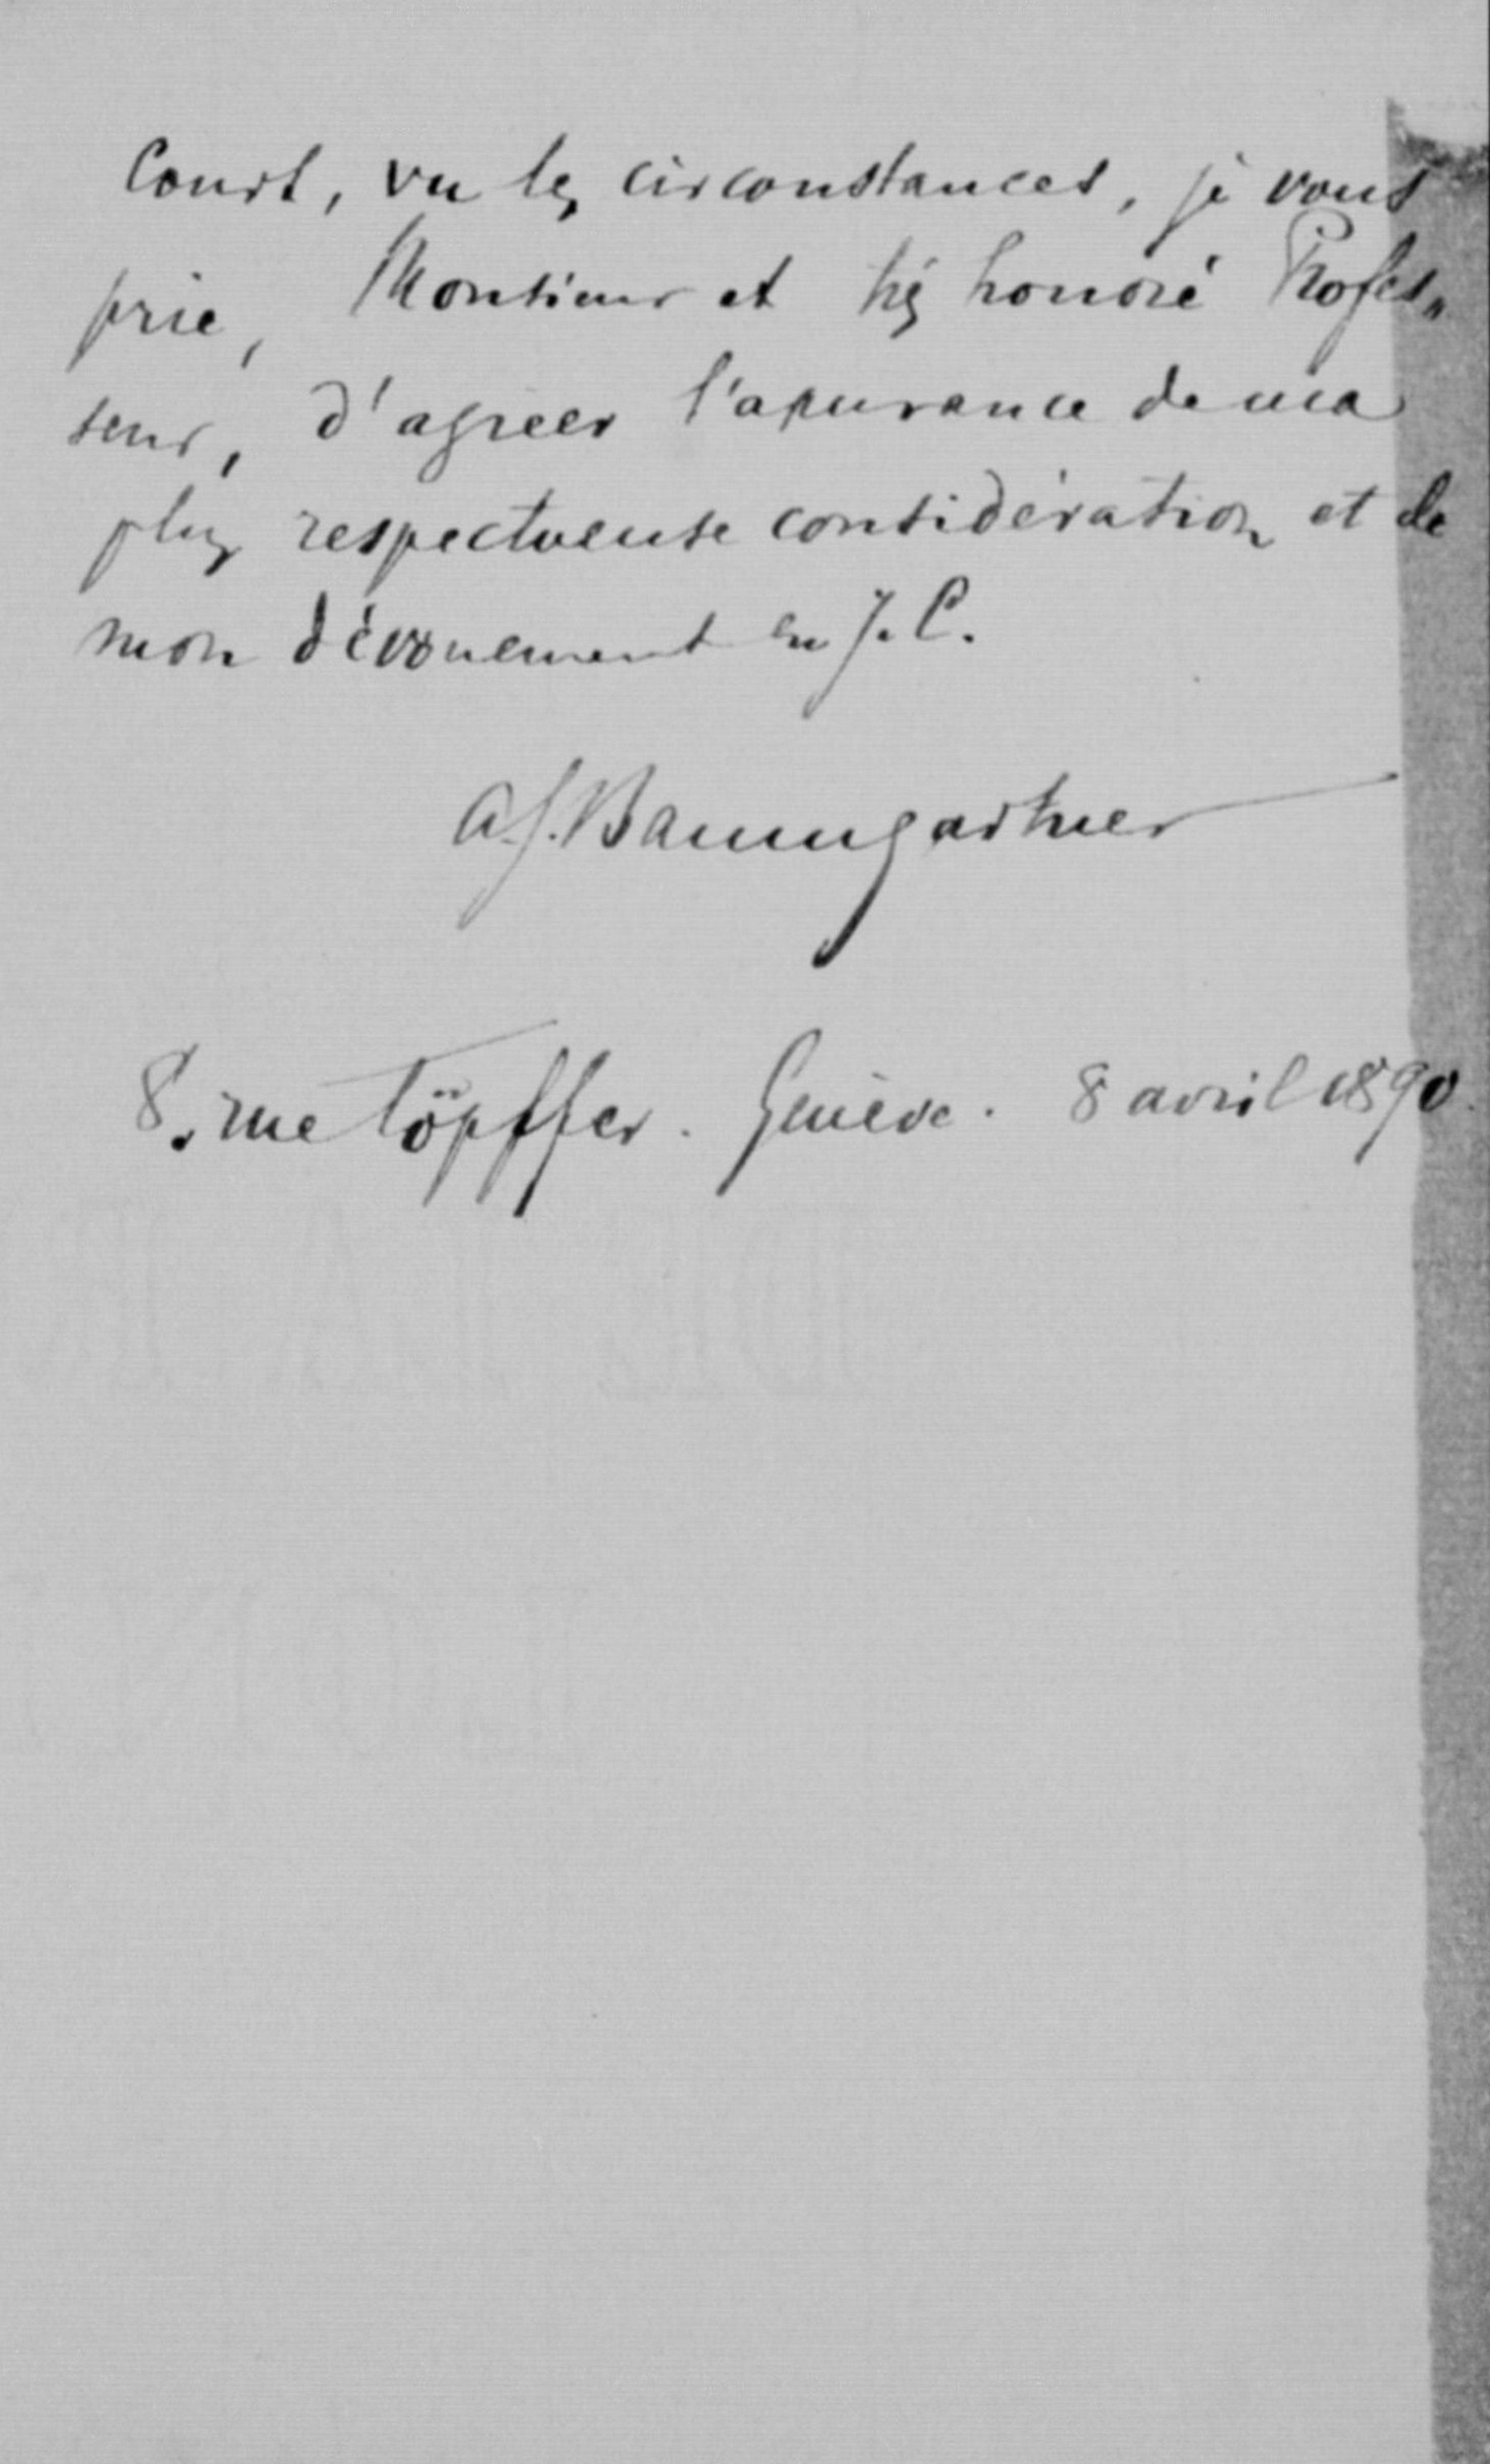 Court, vu les circonstances, je vous
prie, Monsieur et très honoré Profes„
seur, d'agréer l'assurance de ma
plus respectueuse considération et de
mon dévouement en J. C.
A. J. Baumgartner
8. rue Töpffer. Genève. 8 avril 1890.